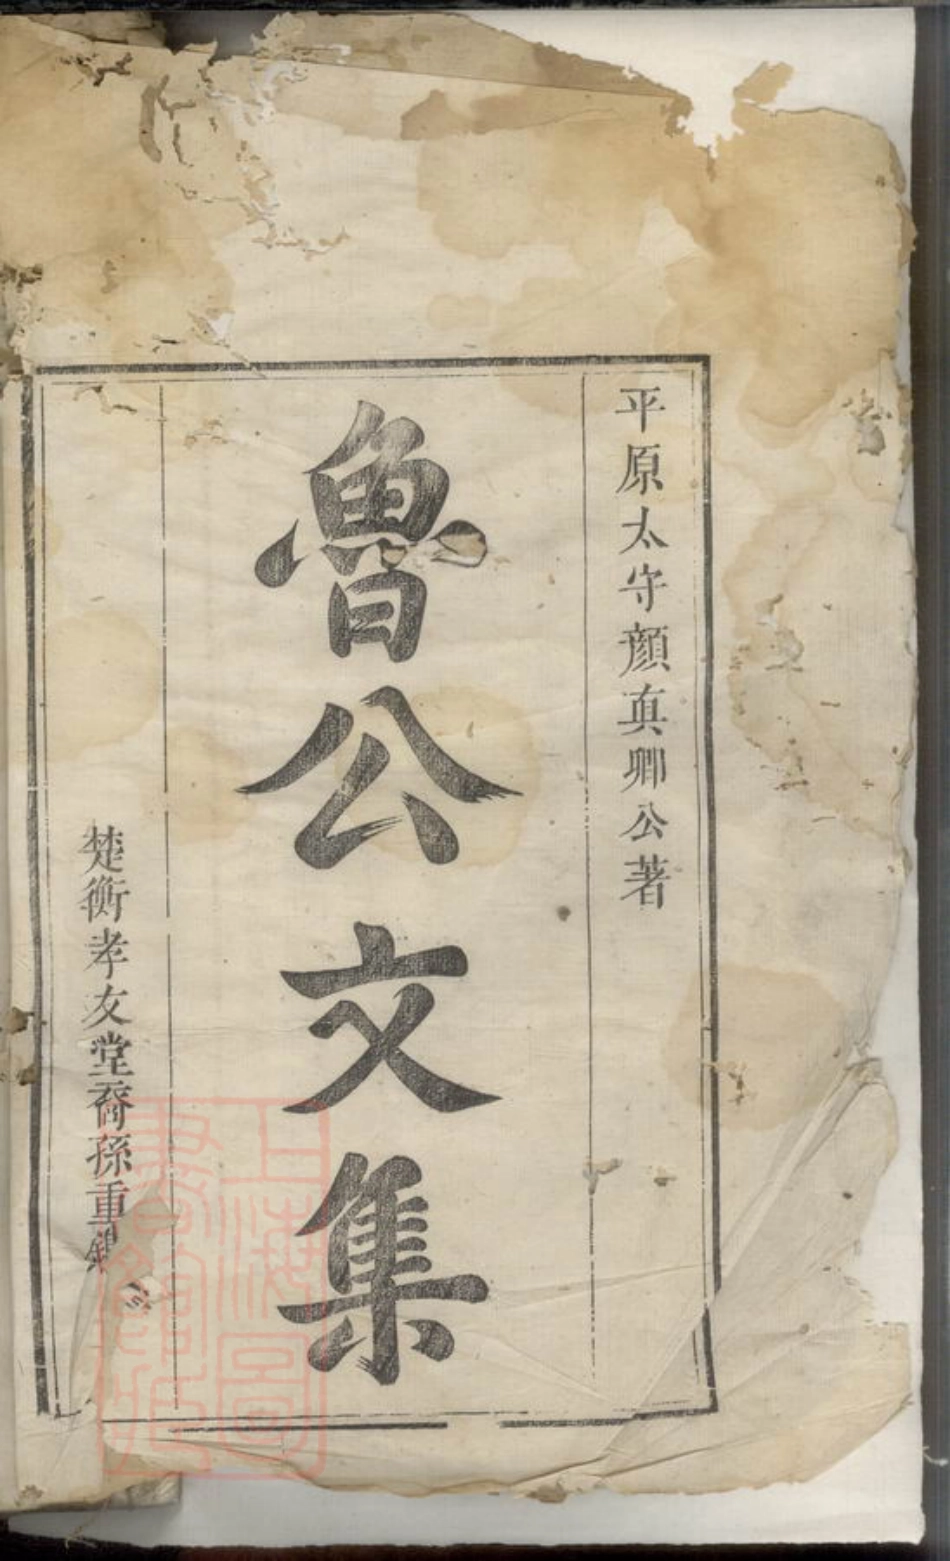 平原太守顏真卿公著
魯公文集
楚衡孝友堂裔孫重鐫
上海圖書館藏